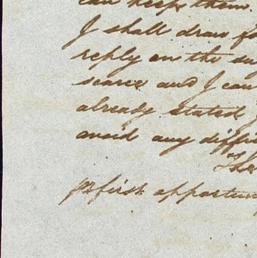 can keep them.
I shall draw fo
reply on the su
scarce and I can
already stated
avoid any diffic
first opportun